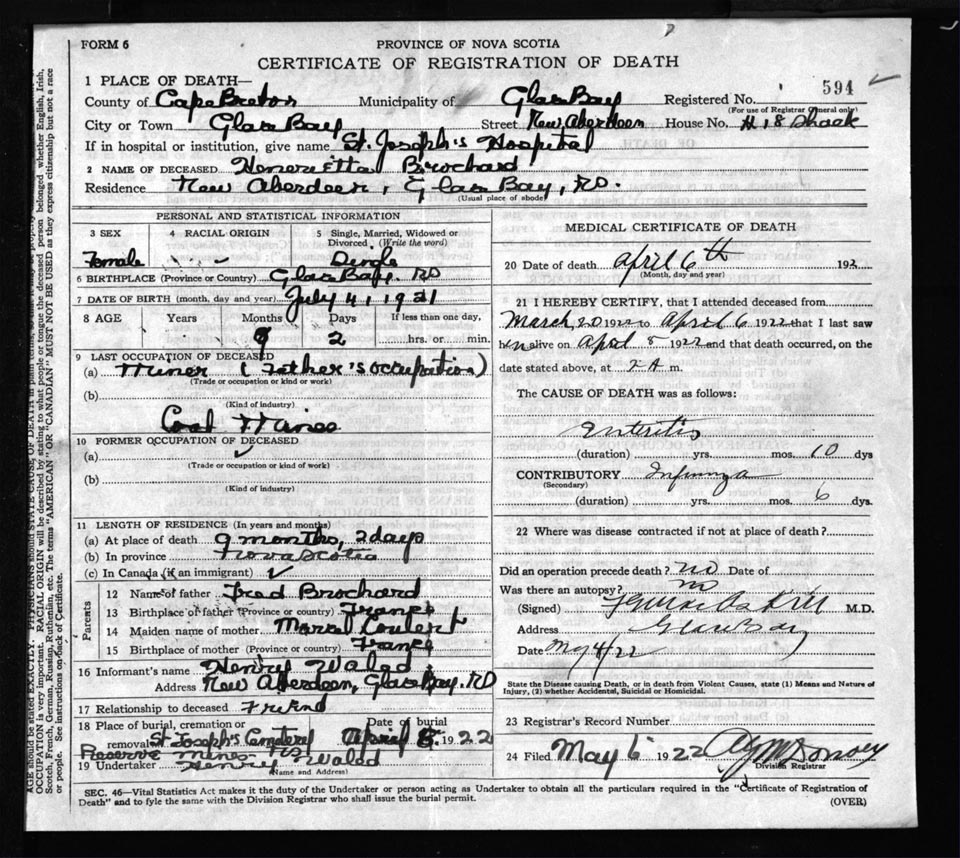 FORM 6
PROVINCE OF NOVA SCOTIA
CERTIFICATE OF REGISTRATION OF DEATH
594
1 PLACE OF DEATH—
County of Cape Breton Municipality of Glace Bay Registered No.
(For use of Registrar General only)
City or Town Glace Bay Street New Aberdeen House No. # 18 Shack
If in hospital or institution, give name St. Joseph's Hospital
2 NAME OF DECEASED Henerietta Brochard
Residence New Aberdeen, Glace Bay, RD.
(Usual place of abode)
PERSONAL AND STATISTICAL INFORMATION
3 SEX 4 RACIAL ORIGIN 5 Single, Married, Widowed or Divorced. (Write the word)
Female Single
6 BIRTHPLACE (Province or Country) Glace Bay. RD
7 DATE OF BIRTH (month, day and year) July 4, 1921
8 AGE Years Months Days If less than one day,
9 2 hrs. or min.
9 LAST OCCUPATION OF DECEASED
(a) Miner (Father's occupation)
(Trade or occupation or kind or work)
(b)
(Kind of industry)
Coal Mines
10 FORMER OCCUPATION OF DECEASED
(a)
(Trade or occupation or kind of work)
(b)
(Kind of industry)
11 LENGTH OF RESIDENCE (In years and months)
(a) At place of death 9 months, 2 days
(b) In province Nova Scotia
(c) In Canada (if an immigrant) ✓
Parents
12 Name of father Fred Brochard
13 Birthplace of father (Province or country) France
14 Maiden name of mother Marcel
15 Birthplace of mother (Province or country) France
16 Informant's name Henry Waled
Address New Aberdeen, Glace Bay. RD
17 Relationship to deceased Friend
18 Place of burial, cremation or Date of burial
removal St Joseph's Cemetery April 8, 1922
Reserve Mines
19 Undertaker Henry Waled
(Name and Address)
MEDICAL CERTIFICATE OF DEATH
20 Date of death April 6th 192
(Month, day and year)
21 I HEREBY CERTIFY, that I attended deceased from
March, 20 1922 to April 6 1922 that I last saw
h alive on April 5 1922 and that death occurred, on
date stated above, at A m.
The CAUSE OF DEATH was as follows:
Enteritis
(duration) yrs. mos. 10 dys
CONTRIBUTORY
(Secondary)
(duration) yrs. mos. 6 dys.
22 Where was disease contracted if not at place of death?
Did an operation precede death? no Date of
Was there an autopsy? no
(Signed) M.D.
Address Glace Bay
Date May 4/22
State the Disease causing Death, or in death from Violent Causes, state (1) Means and Nature of
Injury, (2) whether Accidental, Suicidal or Homicidal.
23 Registrar's Record Number
24 Filed May 6 1922
Division Registrar
SEC. 46—Vital Statistics Act makes it the duty of the Undertaker or person acting as Undertaker to obtain all the particulars required in the "Certificate of Registration of
Death" and to fyle the same with the Division Registrar who shall issue the burial permit.
(OVER)